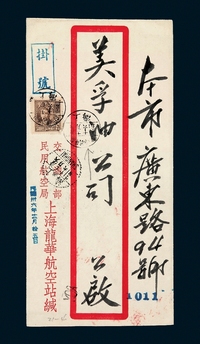 本市廣東路94號
美孚油公司 公啟
掛號
交通部
民用航空局
上海龍華航空站緘
1011